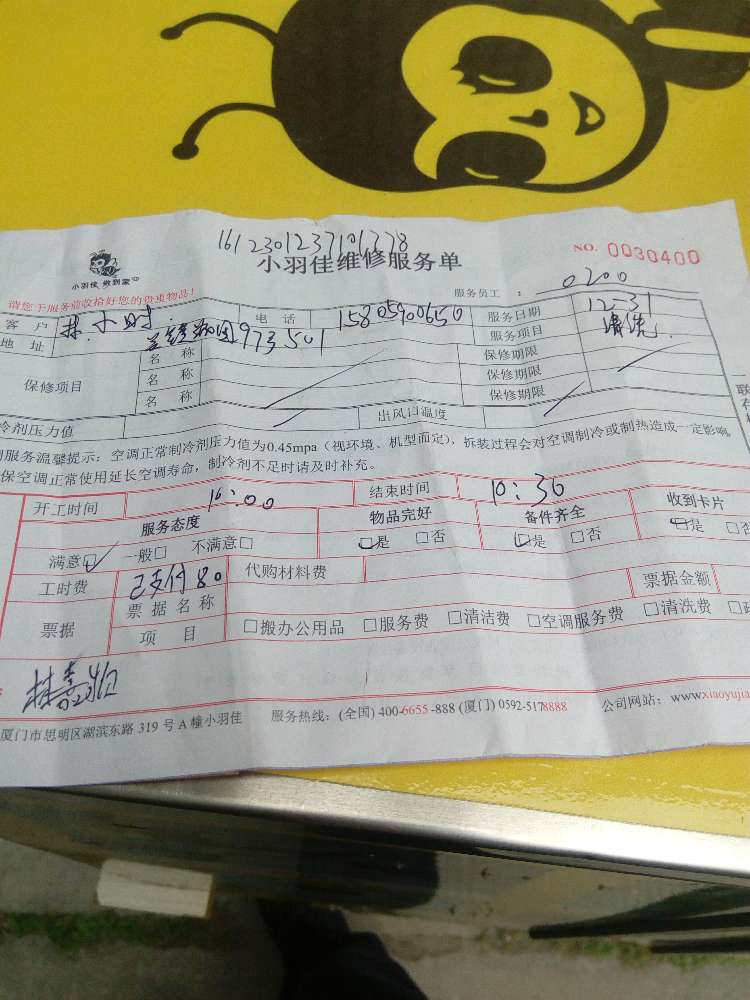 1612301237101778
小羽佳 做到家
小羽佳维修服务单
NO. 0030400
请您于服务前收拾好您的贵重物品!
服务员工 : 0200
客 户 林小时 电 话 15805900650 服务日期 12-31
地 址 973 501 服务项目 清洗
保修项目 名 称 保修期限
名 称 保修期限
名 称 保修期限
冷剂压力值 出风口温度
服务温馨提示: 空调正常制冷剂压力值为0.45mpa (视环境、机型而定), 拆装过程会对空调制冷或制热造成一定影响
保空调正常使用延长空调寿命, 制冷剂不足时请及时补充。
开工时间 16:00 结束时间 10:30
服务态度 物品完好 备件齐全 收到卡片
满意☑ 一般□ 不满意□ ☑是 □否 ☑是 □否 ☑是 □否
工时费 已支付80 代购材料费 票据金额
票据 票据名称
项 目 □搬办公用品 □服务费 □清洁费 □空调服务费 □清洗费
厦门市思明区湖滨东路 319 号 A 幢小羽佳 服务热线: (全国) 400-6655-888 (厦门) 0592-5178888 公司网站: www.xiaoyujia